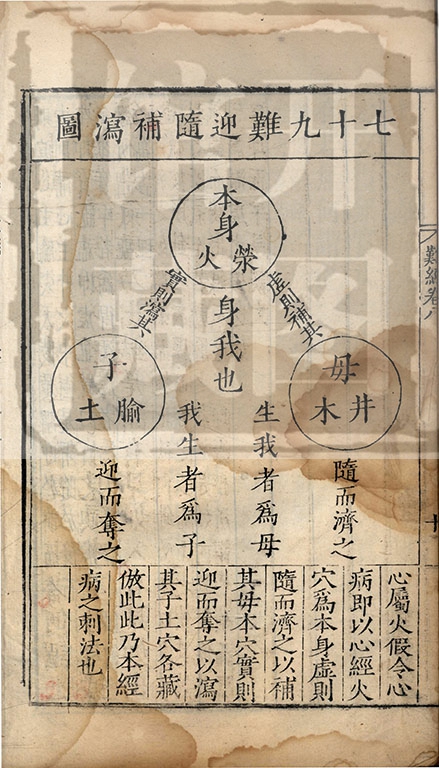 七十九難迎隨補瀉圖
本身
滎火
身我也
虛則補其
實則瀉其
母
井木
子
腧土
生我者爲母
我生者爲子
隨而濟之
迎而奪之
心屬火假令心
病即以心經火
穴爲本身虛則
隨而濟之以補
其母木穴實則
迎而奪之以瀉
其子土穴各藏
倣此此乃本經
病之刺法也
難經卷八
十